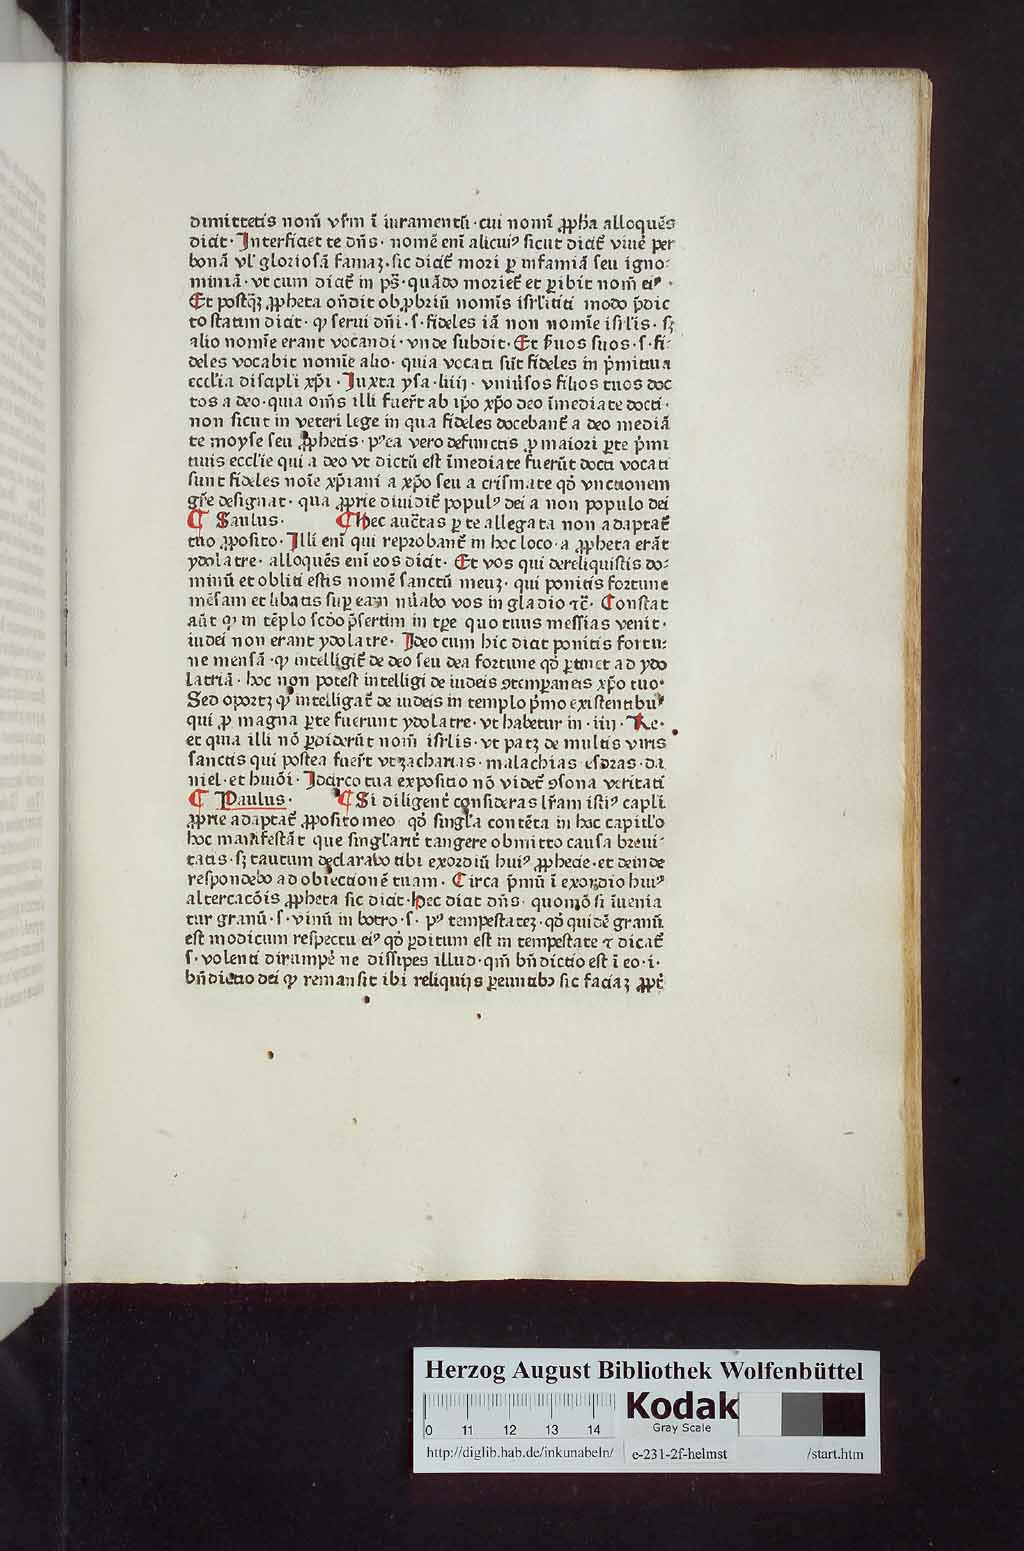 dimittetis nom̄ vr̄m ī iuramentū · cui nomī ꝓph̄a alloquēs
dicit · Interficiet te dn̄s · nomē enī alicuiꝰ sicut dicit᷑ viuē per
bonā vl' gloriosā famaꝫ · sic dicit᷑ mori ꝑ infamiā seu igno⸗
miniā · vt cum dicit᷑ in ps̄ · quādo moriet᷑ et ꝑibit nom̄ eiꝰ ·
Et postq̄ꝫ ꝓpheta on̄dit obꝓbriū nomīs isrl'itici modo p̄dic
to statim dicit · ꝙ serui dn̄i · s · fideles iā non nomīe isrl'is · sꝫ
alio nomīe erant vocandi · vnde subdit · Et s̄uos suos · s · fi⸗
deles vocabit nomīe alio · quia vocati sūt fideles in p̄mitiua
eccl'ia discipli xp̄i · Juxta ysa · liiij · vniūsos filios tuos doc
tos a deo · quia om̄s illi fuer̄t ab ip̄o xp̄o deo īmediate docti ·
non sicut in veteri lege in qua fideles docebant᷑ a deo mediā
te moyse seu ꝓphetis · pꝰea vero defunctis ꝓ maiori ꝑte p̄mi
tiuis eccl'ie qui a deo vt dictū est īmediate fuerūt docti vocati
sunt fideles noīe xp̄iani a xp̄o seu a crismate qd̄ vnctionem
gr̄e designat · qua ꝓprie diuidit᷑ populꝰ dei a non populo dei
¶ Saulus · ¶ Hec auc̄tas ꝑ te allegata non adaptat᷑
tuo ꝓposito · Illi enī qui reprobant᷑ in hoc loco · a ꝓpheta erāt
ydolatre · alloquēs enī eos dicit · Et vos qui dereliquistis do⸗
minū et obliti estis nomē sanctū meuꝫ · qui ponitis fortune
mēsam et libatis suꝑ eam nūabo vos in gladio ⁊c̄ · Constat
aūt ꝙ in tēplo scd̄o p̄sertim in tꝑe quo tuus messias venit ·
iudei non erant ydolatre · Ideo cum hic dicit ponitis fortu⸗
ne mensā · ꝙ intelligit᷑ de deo seu dea fortune qd̄ ꝑtinet ad ydo
latriā · hoc non potest intelligi de iudeis ꝯtemꝑaneis xp̄o tuo ·
Sed oportꝫ ꝙ intelligat᷑ de iudeis in templo p̄mo existentibuꝰ
qui ꝓ magna ꝑte fuerunt ydolatre · vt habetur in · iiij · Re ·
et quia illi nō ꝑdiderūt nom̄ isrl'is · vt patꝫ de multis viris
sanctis qui postea fuer̄t vt zacharias · malachias esdras · da
niel · et huiōi · Idcirco tua expositio nō videt᷑ ꝯsona veritati
¶ Paulus · ¶ Si diligent᷑ consideras lr̄am istiꝰ capl'i
ꝓprie adaptat᷑ ꝓposito meo qd̄ singl'a contēta in hoc capitl'o
hoc manifestāt que singl'arit᷑ tangere obmitto causa breui⸗
tatis · sꝫ tautum declarabo tibi exordiū huiꝰ ꝓphecie · et deinde
respondebo ad obiectionē tuam · Circa p̄mū ī exordio huiꝰ
altercacōis ꝓpheta sic dicit · hec dicit dn̄s · quomō si īuenia
tur granū · s · vinū in botro · s · pꝰ tempestateꝫ · qd̄ quidē granū
est modicum respectu eiꝰ qd̄ ꝑditum est in tempestate ⁊ dicat᷑
s · volenti dirumpē ne dissipes illud · qm̄ bn̄dictio est ī eo · i ·
bn̄dictio dei ꝙ remansit ibi reliquijs ꝑeuntibꝯ sic faciaꝫ ꝓpt᷑
Herzog August Bibliothek Wolfenbüttel
0 11 12 13 14
Kodak
Gray Scale
http://diglib.hab.de/inkunabeln/ e-231-2f-helmst /start.htm